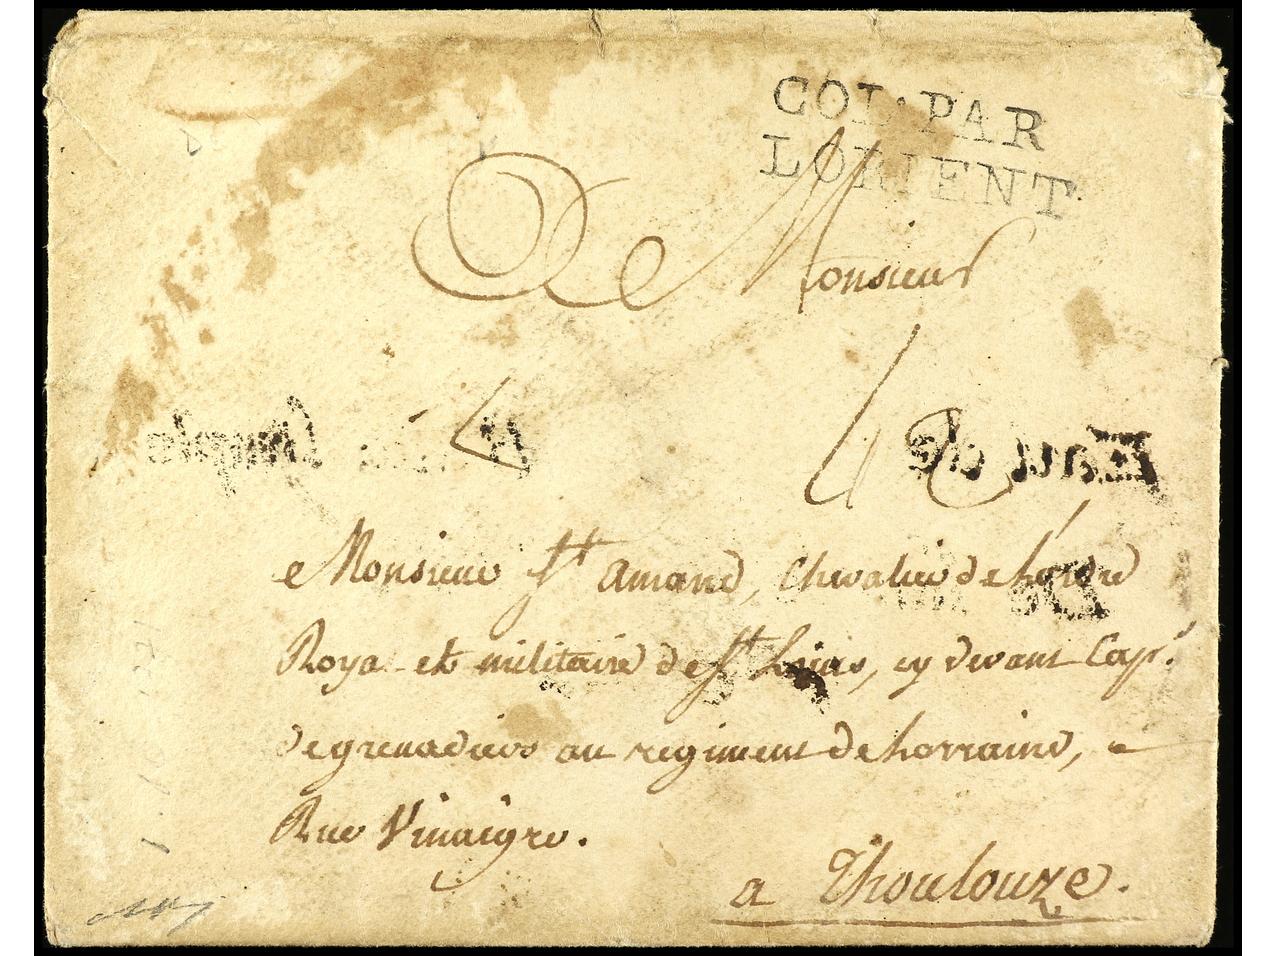 COL. PAR
LORIENT
Monsieur
4
Monsieur St. amand, chevalier de Lordre
Royal et militaire de St. Louis, cy devant Cap.
de grenadiers au regiment de Lorraine,
Rue Vinaigre.
a Thoulouze.